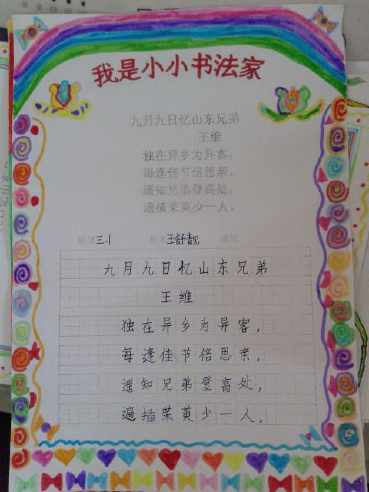 我是小小书法家
九月九日忆山东兄弟
王维
独在异乡为异客,
每逢佳节倍思亲。
遥知兄弟登高处,
遍插茱萸少一人。
三-1 王舒
九月九日忆山东兄弟
王维
独在异乡为异客,
每逢佳节倍思亲,
遥知兄弟登高处,
遍插茱萸少一人,